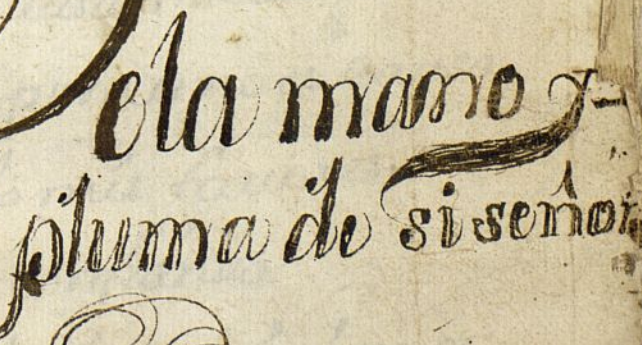 De la mano y
pluma de si señor